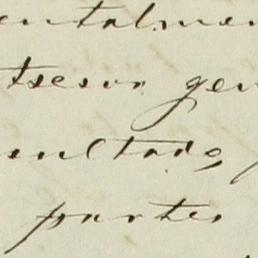 entalmen
tsesor gen
esultado,
partes